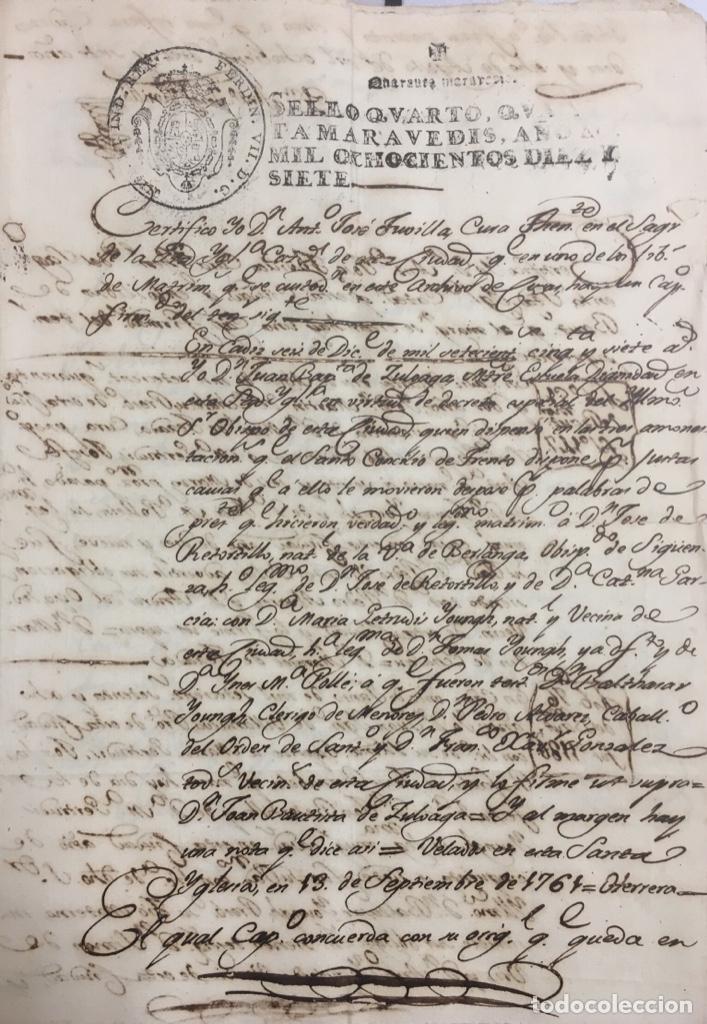 FERDIN. VII. D. G.
IND. REX.
Quarenta maravedis.
SELLO QVARTO, QVA
TA MARAVEDIS, AÑO
MIL OCHOCIENTOS DIEZ Y
SIETE.
Certifico Yo Dn. Anto. José Cura Then.te en el Sagr.
de la Sta. Ygl.a Cat.l de esta Ciudad q.e en uno de los lib.s
de Matrim.s q.e se custod.n en este Archivo de hay un Cap.o
firm.do del ten.r sig.te
En Cadiz seis de Dic.e de mil setecient.s cinq.ta y siete a.s
Yo Dn. Juan Bap.ta de Zuloaga Mtre. Escuela Dignidad en
esta Sta. Ygl.a en virtud de decreto del Yllmo.
Sr. Obispo de esta Ciudad, quien dispensó en las tres amones
taciones q.e el Santo Concilio de Trento dispone p.r justas
causas q.e á ello le movieron desposé p.r palabras de
pres.te q.e hicieron verdad.o y leg.mo matrim.o á Dn. Jose de
Retortillo, nat.l de la V.a de Berlanga, Obisp.do de Siguen
za, h.o leg.mo de Dn. José de Retortillo, y de D.a Cat.na Gar
cia: con D.a Maria Petrudis Youngh, nat.l y Vecina de
esta Ciudad, h.a leg.ma de Dn. Tomas Youngh, ya df.to y de
D.a Ynes M.a Pollé; á q.e fueron test.s Dn. Balthasar
Youngh Clerigo de Menores, Dn. Pedro Alvarez, Caball.o
del Orden de Sant.o y Dn. Fran.co Xav.r Gonzalez
tod.s Vecin.s de esta Ciudad, y lo firmé ut supra=
Dn. Joan Bautista de Zuloaga = Y al margen hay
una nota q.e dice asi = Velados en esta Santa
Yglesia, en 13. de Septiembre de 1761 = Herrera =
El qual Cap.o concuerda con su orig.l q.e queda en
todocoleccion